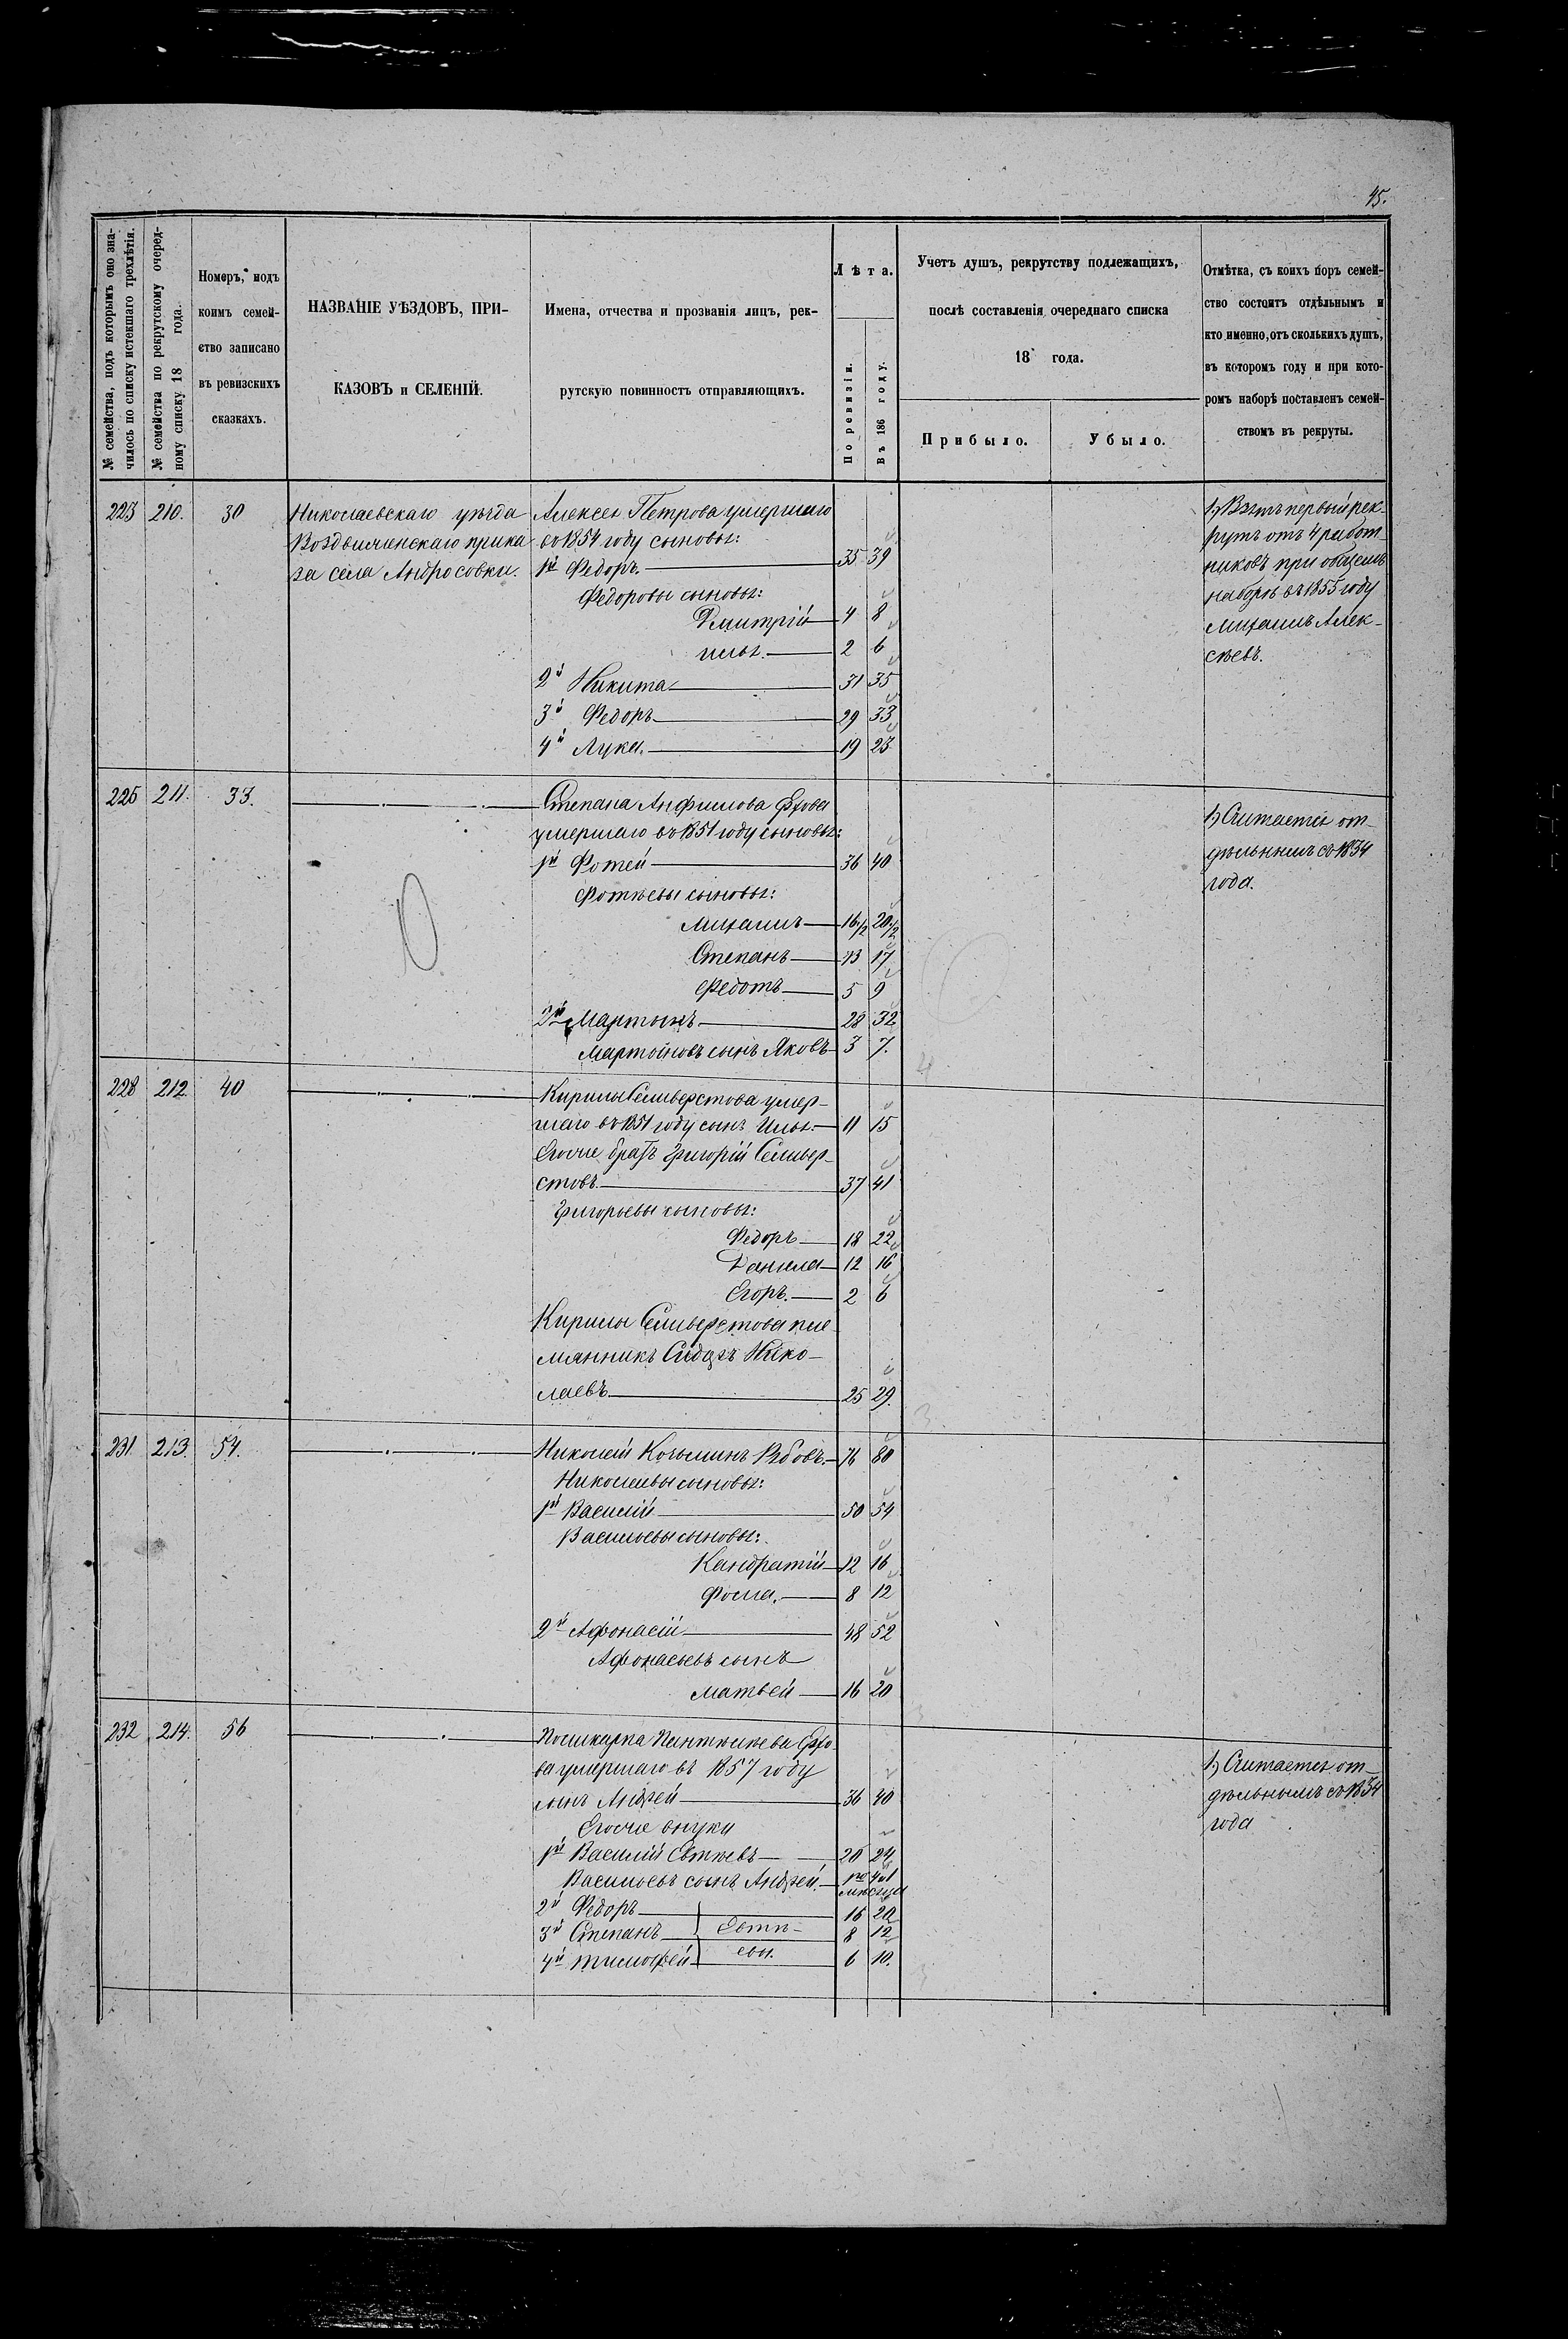 45.
№ семейства, подъ которымъ оно зна-
чилось по списку истекшаго трехлѣтія.
№ семейства по рекрутскому очеред-
ному списку 18 года.
Номеръ, подъ
коимъ семей-
ство записано
въ ревизскихъ
сказкахъ.
НАЗВАНІЕ УѢЗДОВЪ, ПРИ-
КАЗОВЪ и СЕЛЕНІЙ.
Имена, отчества и прозванія лицъ, рек-
рутскую повинность отправляющихъ.
Лѣта.
По ревизіи.
Въ 186 году.
Учетъ душъ, рекрутству подлежащихъ,
послѣ составленія очереднаго списка
18 года.
Прибыло.
Убыло.
Отмѣтка, съ коихъ поръ семей-
ство состоитъ отдѣльнымъ и
кто именно, отъ сколькихъ душъ,
въ которомъ году и при кото-
ромъ наборѣ поставленъ семей-
ствомъ въ рекруты.
223 210. 30
Николаевскаго уѣзда
Воздвиженскаго прика
за села Андросовки.
Алексея Петрова умершаго
въ 1854 году сыновья:
1й Федоръ. 35 39
Федоровы сыновья:
Дмитрій 4 8
Илья. 2 6
2й Никита 31 35
3й Федоръ 29 33
4й Лука. 19 23
1, Взятъ первый рек-
рутъ отъ 4 работ
никовъ при общемъ
наборѣ въ 1855 году
Михаилъ Алек-
сѣевъ.
225 211. 33.
Степана Анфилова
умершаго въ 1851 году сыновья:
1й Фотей 36 40
Фотѣевы сыновья:
Михаилъ 16 1/2 20 1/2
Степанъ 13 17
Федотъ 5 9
2й Мартынъ 28 32
Мартыновъ сынъ Яковъ 3 7.
1, Считается от-
дѣльнымъ съ 1834
года.
228 212. 40
Кирилы Селиверстова умер-
шаго въ 1851 году сынъ Илья. 11 15
Его же братъ Григорій Селивер-
стовъ. 37 41
Григорьевы сыновья:
Федоръ 18 22
Данила 12 16
Егоръ. 2 6
Кирилы Селиверстова пле
мянникъ Сидоръ Нико-
лаевъ 25 29.
231 213. 54.
Николай Козьминъ 76 80
Николаевы сыновья:
1й Василій 50 54
Васильевы сыновья:
Кандратій 12 16
Фома. 8 12
2й Афонасій 48 52
Афонасьевъ сынъ
Матвей 16 20
232 214. 56
умершаго въ 1857 году
сынъ Андрей 36 40
Его же внуки
1й Василій 20 24
Васильевъ сынъ Андрей.
2й Федоръ 16 20
3й Степанъ 8 12
4й Тимофей 6 10.
1, Считается от-
дѣльнымъ съ 1834
года